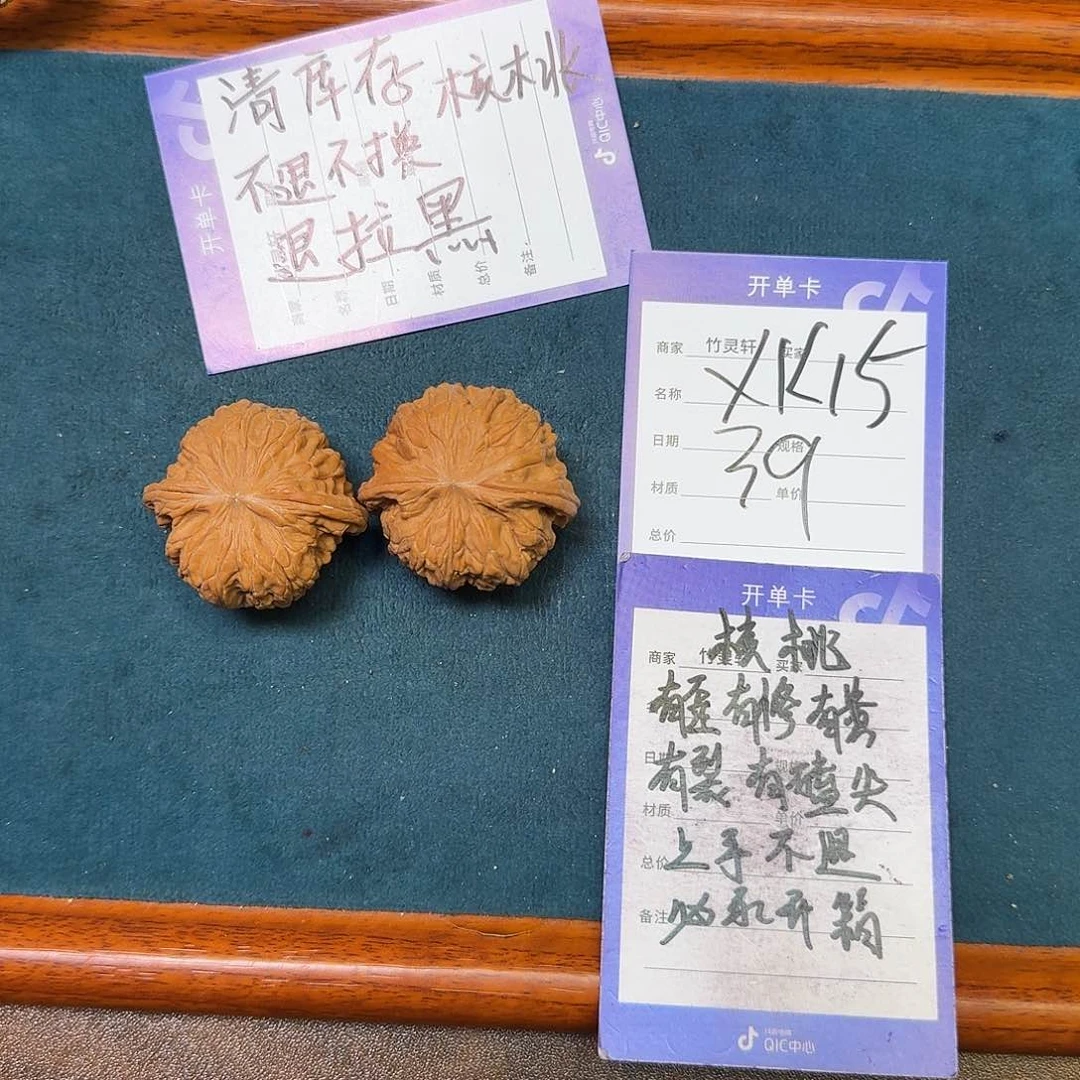 清库存 核桃
不退不换
退拉黑
开单卡
商家
名称
日期
材质
总价
备注
QIC中心
开单卡
商家 竹灵轩 买家
XK15
名称
39
日期 规格
材质 单价
总价
开单卡
核桃
商家 竹灵轩 买家
有歪有修有黄
有裂有磕尖
材质 单价
上手不退
总价
必录开箱
备注
抖音电商
QIC中心